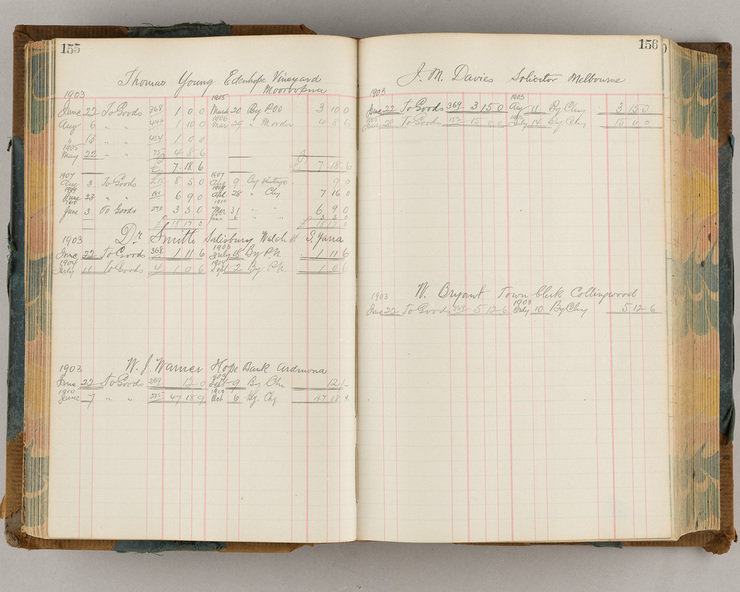 155
Thomas Young Edenhope Vineyard
Mooroopna
1903
June 22 To Goods 368 1 0 0 March 20 By POO 3 10 0
Aug 6 " " 1 10 0 1906 Mar 29 " Moodie 4 8 6
13 " " 1 0 0
1905
May 22 " " 4 8 6
£ 7 18 6 £ 7 18 6
1907
Aug 3 To Goods 8 5 0 1907 Aug 9 By 9 0
23 " " 6 9 0 28 " Chq 7 16 0
June 3 To Goods 3 3 0 Mar 31 " " 6 9 0
1903 Dr Smith Salisbury S. Yarra
June 22 To Goods 368 1 11 6 July 18 By PN 1 11 6
1904
July 11 To Goods 4 1 0 6 Sept 2 By PN 1 0 6
1903 W. J. Warner Hope Bank Ardmona
June 22 To Good 369 12 0 Sept 9 By Chq 12 -
1910
June 7 " " 47 18 9 1910 Oct 6 By Chq 47 18 9
156
J. M. Davies Solicitor Melbourne
1903
June 22 To Goods 369 3 15 0 1903 Aug 11 By Chq 3 15 0
June 22 To Goods 15 0 0 July 14 By Chq 15 0 0
W. Bryant Town Clerk Collingwood
1903
June 22 To Goods 5 12 6 1903 July 10 By Chq 5 12 6